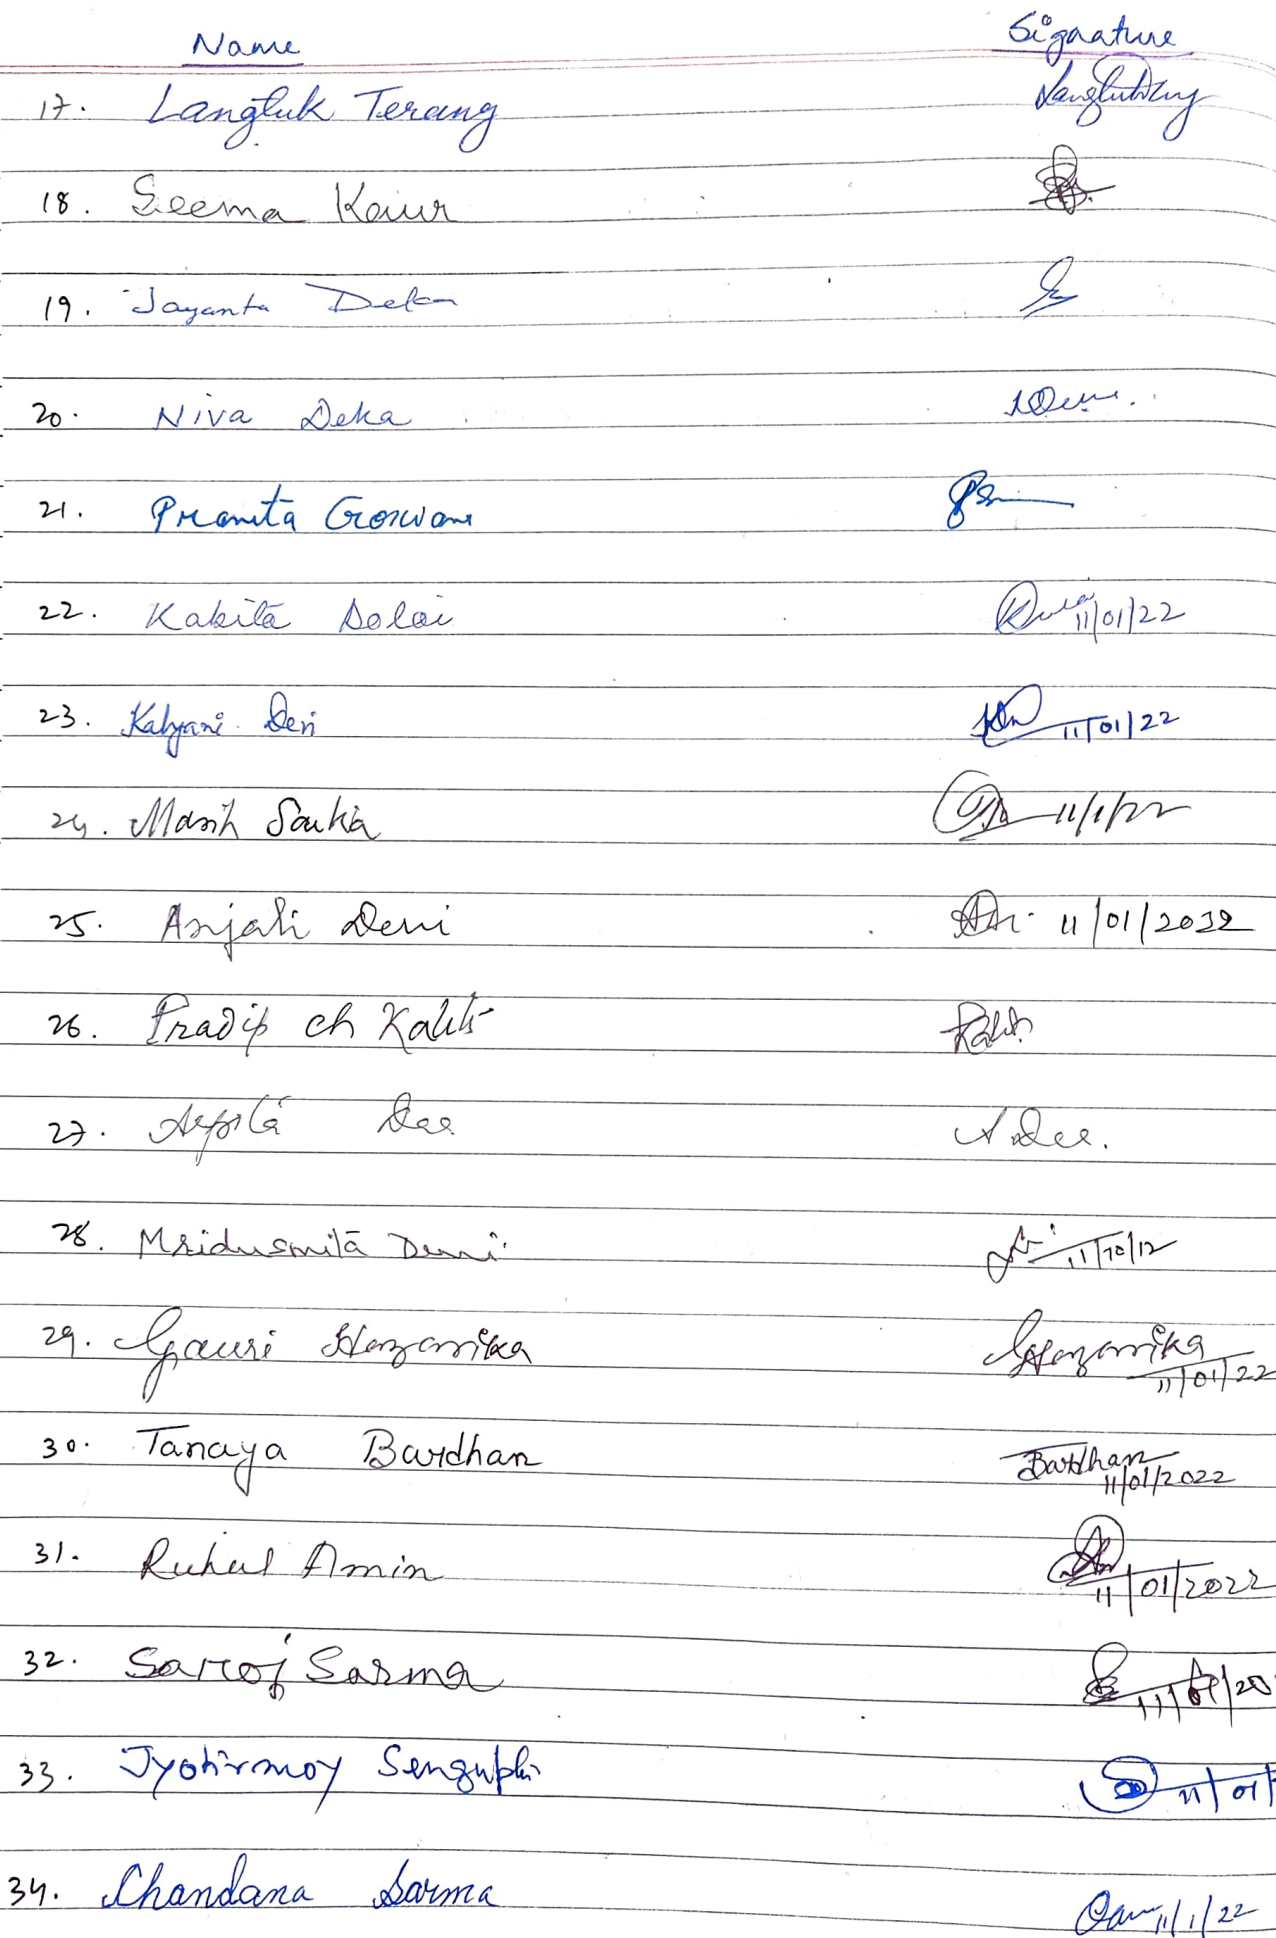 Name Signature
17. Langluk Terang
18. Seema Kaur
19. Jayanta Deka
20. Niva Deka
21. Pranita Goswami
22. Kabita Dolai 11/01/22
23. Kalyani Devi 11/01/22
24. Saikia 11/1/22
25. Anjali Devi 11/01/2022
26. Pradip ch Kalita Kalita
27. Arpita Dee A Dee.
28. Mridusmita Devi 11/10/12
29. Gauri Hazarika GHazarika
11/01/22
30. Tanaya Bardhan Bardhan
11/01/2022
31. Ruhul Amin
11/01/2022
32. Saroj Sarma 11/01/20
33. Jyotirmoy Sengupta 11/01/
34. Chandana Sarma 11/1/22